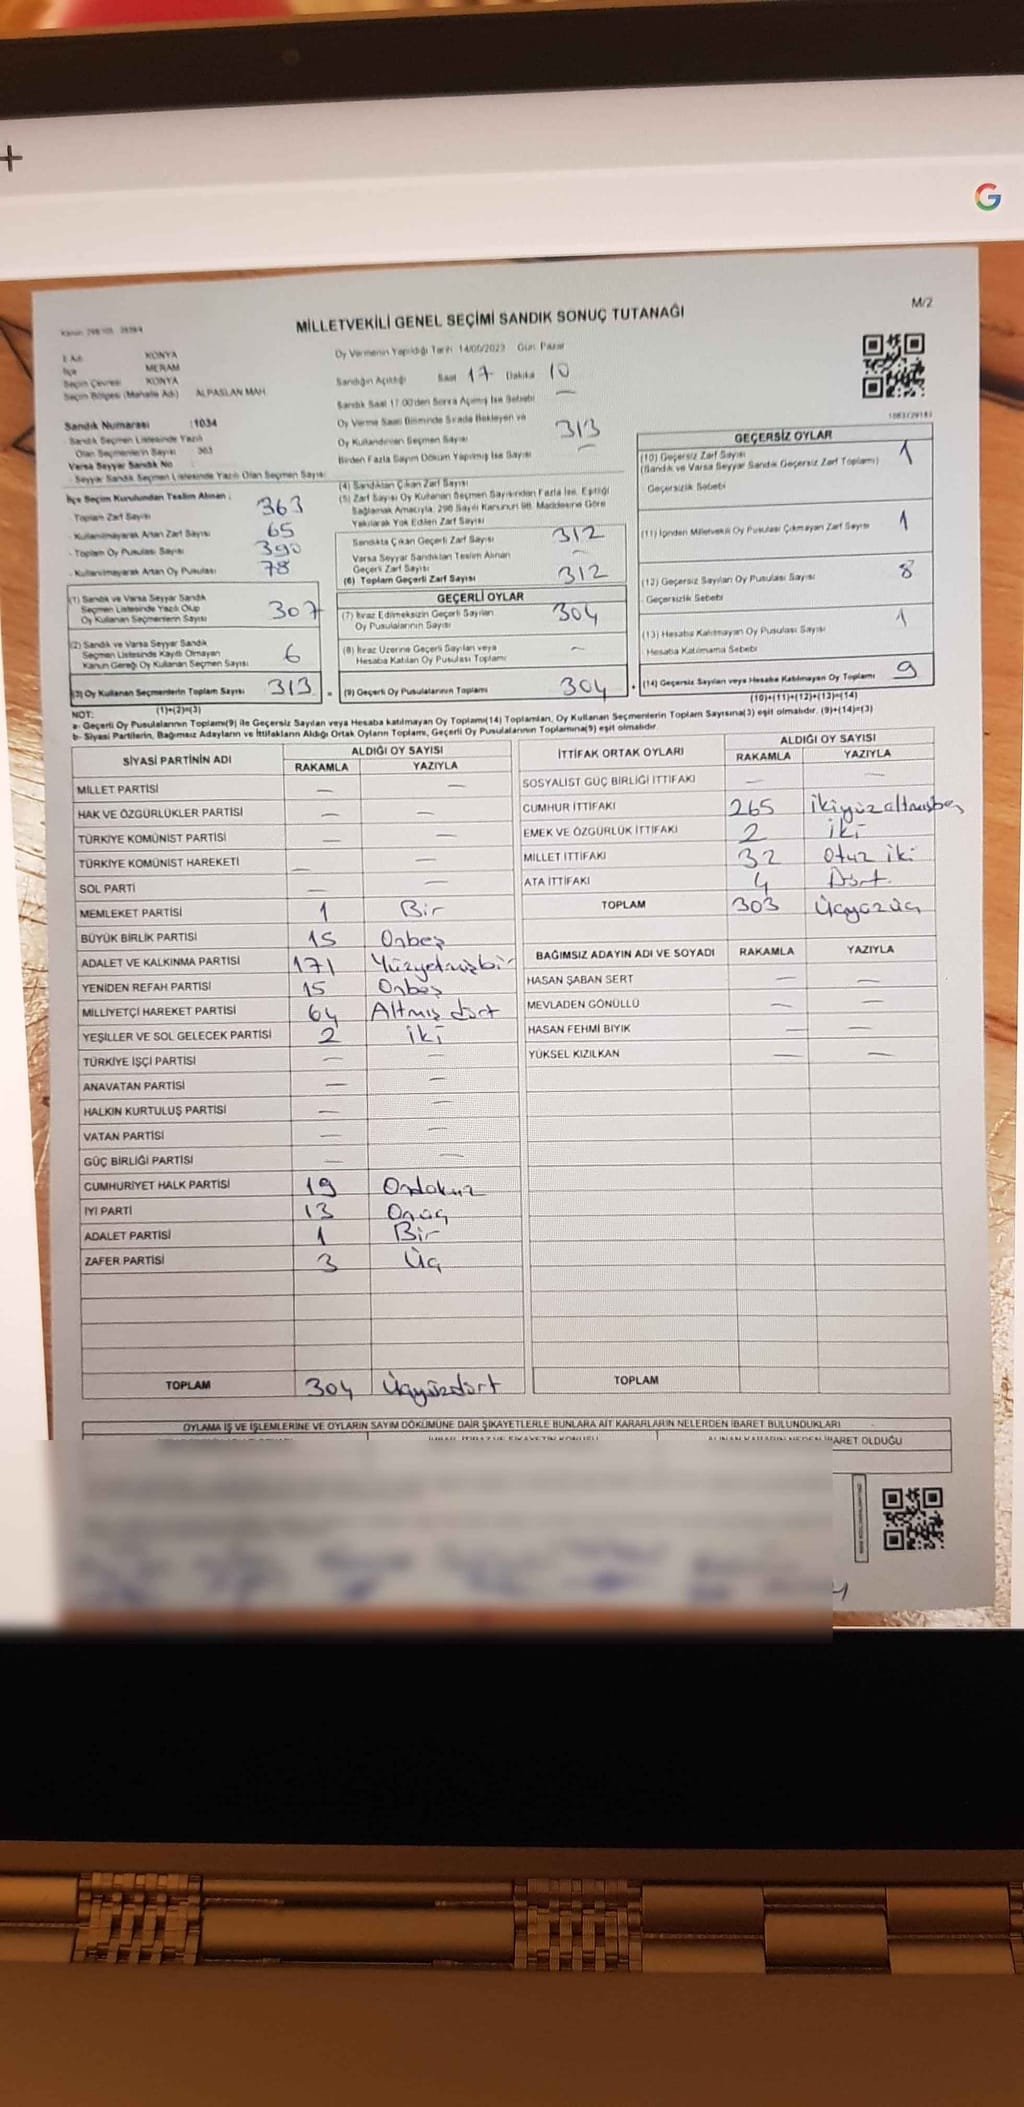 +
G
M/2
MİLLETVEKİLİ GENEL SEÇİMİ SANDIK SONUÇ TUTANAĞI
İl Adı KONYA
İlçe MERAM
Seçim Çevresi KONYA
Seçim Bölgesi (Mahalle Adı) ALPASLAN MAH.
Sandık Numarası : 1034
Sandık Seçmen Listesinde Yazılı
Olan Seçmenlerin Sayısı 363
Varsa Seyyar Sandık No
Seyyar Sandık Seçmen Listesinde Yazılı Olan Seçmen Sayısı
Oy Vermenin Yapıldığı Tarih 14/05/2023 Gün: Pazar
Sandığın Açıldığı Saat 17 Dakika 10
Sandık Saat 17.00'den Sonra Açılmış İse Sebebi —
Oy Verme Saati Bitiminde Sırada Bekleyen ve
Oy Kullandırılan Seçmen Sayısı 313
Birden Fazla Sayım Döküm Yapılmış İse Sayısı —
İlçe Seçim Kurulundan Teslim Alınan ;
Toplam Zarf Sayısı 363
Kullanılmayarak Artan Zarf Sayısı 65
Toplam Oy Pusulası Sayısı 390
Kullanılmayarak Artan Oy Pusulası 78
(1) Sandık ve Varsa Seyyar Sandık
Seçmen Listesinde Yazılı Olup
Oy Kullanan Seçmenlerin Sayısı 307
(2) Sandık ve Varsa Seyyar Sandık
Seçmen Listesinde Kayıtlı Olmayan
Kanun Gereği Oy Kullanan Seçmen Sayısı 6
(3) Oy Kullanan Seçmenlerin Toplam Sayısı 313
(1)+(2)=(3)
(4) Sandıktan Çıkan Zarf Sayısı
(5) Zarf Sayısı Oy Kullanan Seçmen Sayısından Fazla İse, Eşitliği
Sağlamak Amacıyla, 298 Sayılı Kanunun 98. Maddesine Göre
Yakılarak Yok Edilen Zarf Sayısı
Sandıkta Çıkan Geçerli Zarf Sayısı 312
Varsa Seyyar Sandıktan Teslim Alınan
Geçerli Zarf Sayısı —
(6) Toplam Geçerli Zarf Sayısı 312
GEÇERLİ OYLAR
(7) İtiraz Edilmeksizin Geçerli Sayılan
Oy Pusulalarının Sayısı 304
(8) İtiraz Üzerine Geçerli Sayılan veya
Hesaba Katılan Oy Pusulası Toplamı —
(9) Geçerli Oy Pusulalarının Toplamı 304
GEÇERSİZ OYLAR
(10) Geçersiz Zarf Sayısı 1
(Sandık ve Varsa Seyyar Sandık Geçersiz Zarf Toplamı)
Geçersizlik Sebebi
(11) İçinden Milletvekili Oy Pusulası Çıkmayan Zarf Sayısı 1
(12) Geçersiz Sayılan Oy Pusulası Sayısı 8
Geçersizlik Sebebi
(13) Hesaba Katılmayan Oy Pusulası Sayısı 1
Hesaba Katılmama Sebebi
(14) Geçersiz Sayılan veya Hesaba Katılmayan Oy Toplamı 9
(10)+(11)+(12)+(13)=(14)
NOT:
a- Geçerli Oy Pusulalarının Toplamı(9) ile Geçersiz Sayılan veya Hesaba katılmayan Oy Toplamı(14) Toplamları, Oy Kullanan Seçmenlerin Toplam Sayısına(3) eşit olmalıdır. (9)+(14)=(3)
b- Siyasi Partilerin, Bağımsız Adayların ve İttifakların Aldığı Ortak Oyların Toplamı, Geçerli Oy Pusulalarının Toplamına(9) eşit olmalıdır.
SİYASİ PARTİNİN ADI ALDIĞI OY SAYISI
RAKAMLA YAZIYLA
MİLLET PARTİSİ — —
HAK VE ÖZGÜRLÜKLER PARTİSİ — —
TÜRKİYE KOMÜNİST PARTİSİ — —
TÜRKİYE KOMÜNİST HAREKETİ — —
SOL PARTİ — —
MEMLEKET PARTİSİ 1 Bir
BÜYÜK BİRLİK PARTİSİ 15 Onbeş
ADALET VE KALKINMA PARTİSİ 171 Yüzyetmişbir
YENİDEN REFAH PARTİSİ 15 Onbeş
MİLLİYETÇİ HAREKET PARTİSİ 64 Altmış dört
YEŞİLLER VE SOL GELECEK PARTİSİ 2 iki
TÜRKİYE İŞÇİ PARTİSİ — —
ANAVATAN PARTİSİ — —
HALKIN KURTULUŞ PARTİSİ — —
VATAN PARTİSİ — —
GÜÇ BİRLİĞİ PARTİSİ — —
CUMHURİYET HALK PARTİSİ 19 Ondokuz
İYİ PARTİ 13 Onüç
ADALET PARTİSİ 1 Bir
ZAFER PARTİSİ 3 Üç
TOPLAM 304 Üçyüzdört
İTTİFAK ORTAK OYLARI ALDIĞI OY SAYISI
RAKAMLA YAZIYLA
SOSYALİST GÜÇ BİRLİĞİ İTTİFAKI — —
CUMHUR İTTİFAKI 265 ikiyüzaltmışbeş
EMEK VE ÖZGÜRLÜK İTTİFAKI 2 iki
MİLLET İTTİFAKI 32 Otuz iki
ATA İTTİFAKI 4 Dört
TOPLAM 303 Üçyüzüç
BAĞIMSIZ ADAYIN ADI VE SOYADI RAKAMLA YAZIYLA
HASAN ŞABAN SERT — —
MEVLADEN GÖNÜLLÜ — —
HASAN FEHMİ BIYIK — —
YÜKSEL KIZILKAN — —
TOPLAM
OYLAMA İŞ VE İŞLEMLERİNE VE OYLARIN SAYIM DÖKÜMÜNE DAİR ŞİKAYETLERLE BUNLARA AİT KARARLARIN NELERDEN İBARET BULUNDUKLARI
İBARET OLDUĞU